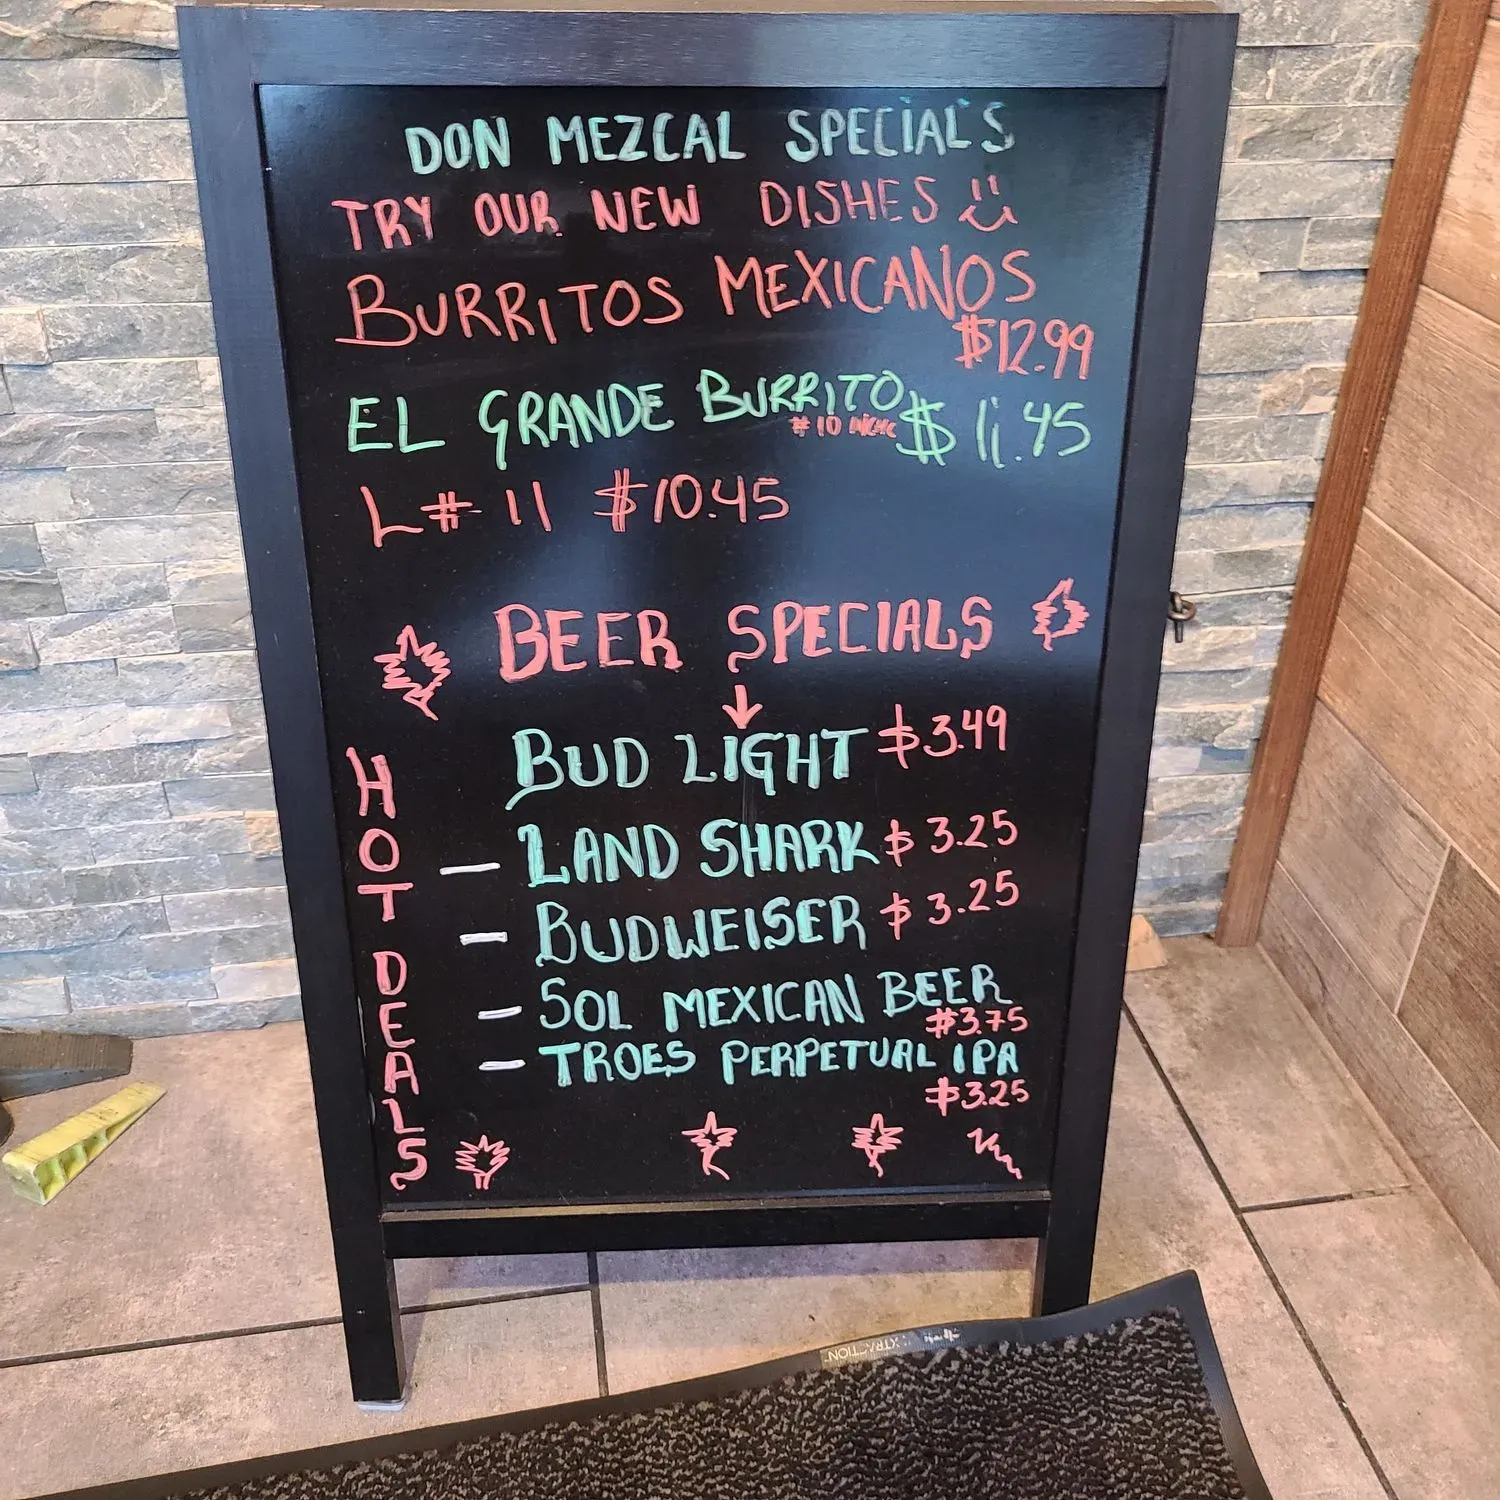 DON MEZCAL SPECIALS
TRY OUR NEW DISHES
BURRITOS MEXICANOS
$12.99
EL GRANDE BURRITO $11.45
#10
L# 11 $10.45
BEER SPECIALS
BUD LIGHT $3.49
LAND SHARK $3.25
BUDWEISER $3.25
SOL MEXICAN BEER
$3.75
TROES PERPETUAL IPA
$3.25
HOT DEALS
XTRACTION